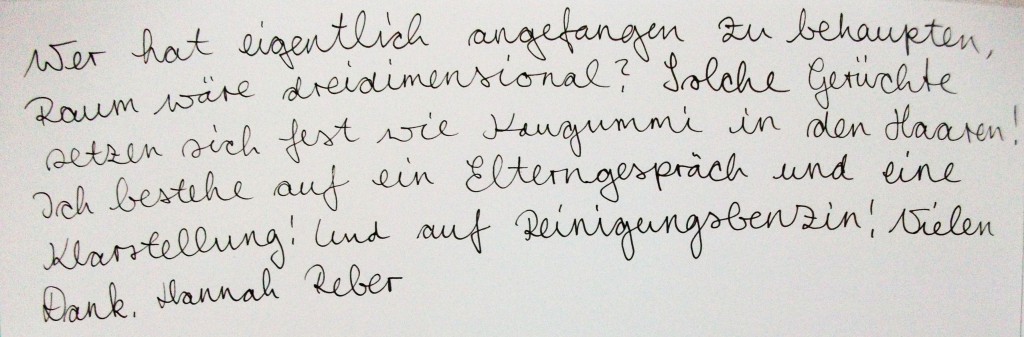 Wer hat eigentlich angefangen zu behaupten,
Raum wäre dreidimensional? Solche Gerüchte
setzen sich fest wie Kaugummi in den Haaren!
Ich bestehe auf ein Elterngespräch und eine
Klarstellung! Und auf Reinigungsbenzin! Vielen
Dank. Hannah Reber